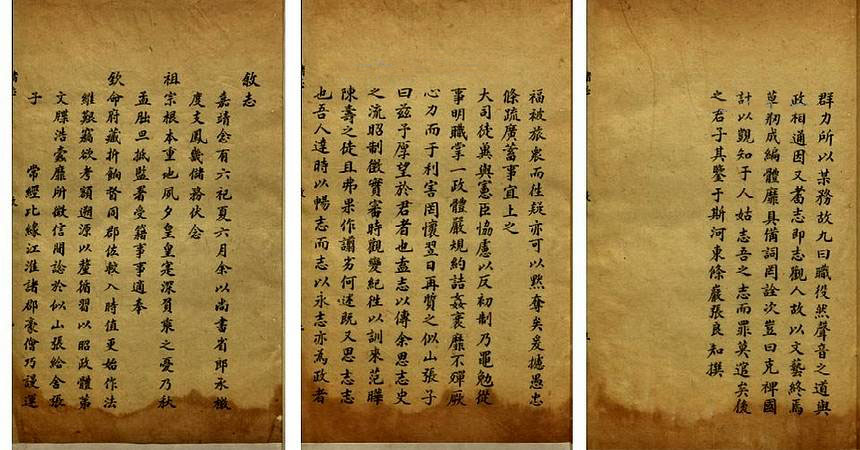 敘志
嘉靖念有六祀夏六月余以尚書省郎承檄
度支鳳畿儲務伏念
祖宗根本重地夙夕皇皇寔深員乘之憂乃秋
孟朏旦抵監署受籍事事適奉
欽命府藏折鈉督同郡佐敕入時值更始作法
維艱竊欲考額遡源以釐循習以昭政體第
文牒浩靡所徵信閒諗於似山張給舍張
子常經比緣江淮諸郡豪儈巧謾運
福被旅裒而任疑亦可以黙奪矣爰攄愚忠
條疏廣蓄事宜上之
大司徒冀與憲臣恊慮以反初制乃黽勉從
事明職掌一政體嚴規約詰姦裹靡不殫厥
心力而于利害罔懷翌日再質之似山張子
曰兹予厚望於君者也盍志以傳余思志史
之流昭制徵實審時觀變紀徃以訓來范瞱
陳壽之徒且弗果作謭劣何述既又思志志
也吾人達時以暢志而志以永志亦為政者
群力所以某務故九曰職役然聲音之道與
政相通因文耆志即志觀人故以文藝終焉
草剏成編體靡具備詞罔詮次豈曰克裨國
計以覬知于人姑志吾之志而罪莫逭矣後
之君子其鑒于斯河東條巖張良知撰